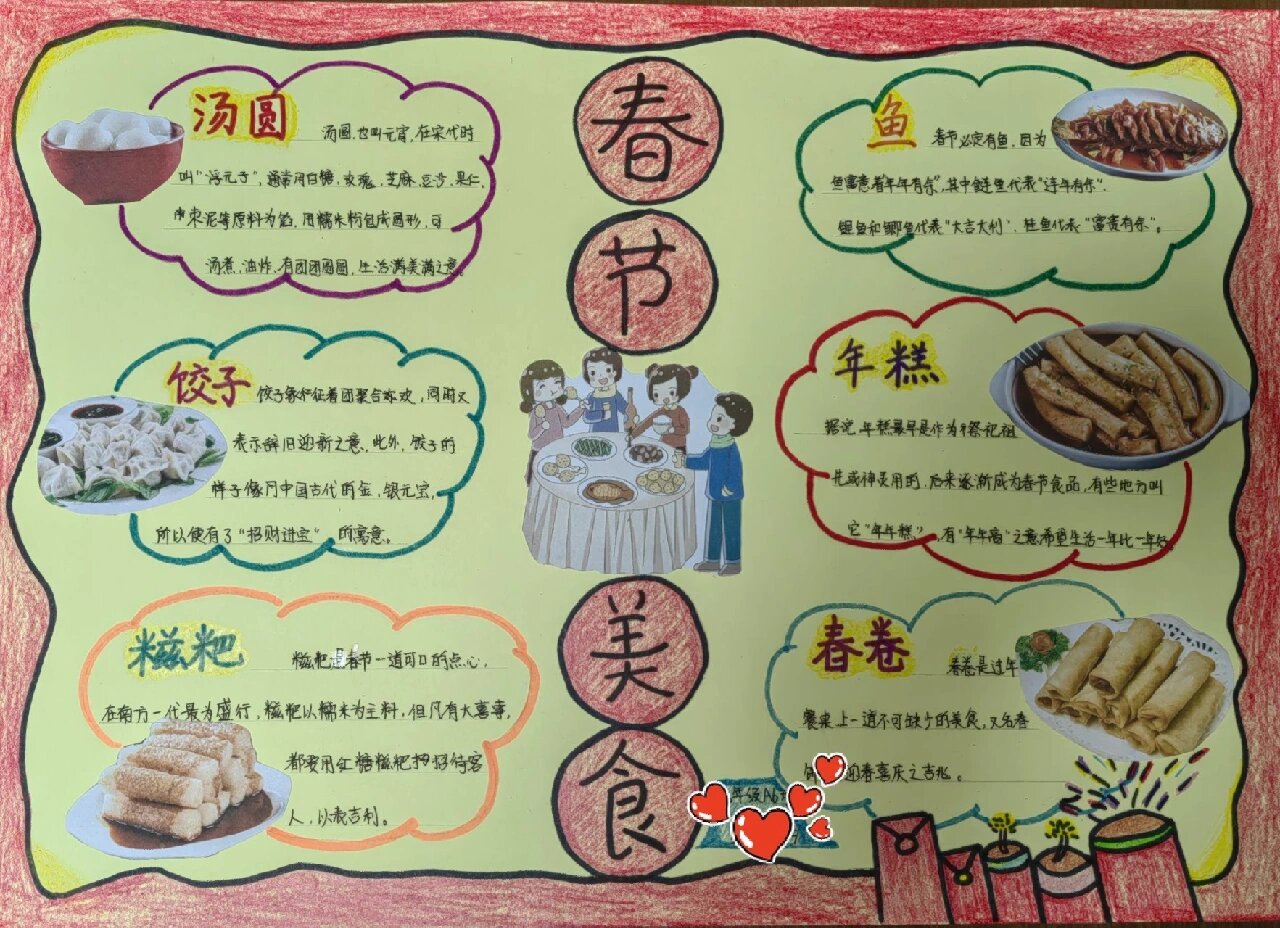 春节
美食
汤圆
汤圆,也叫元宵,在宋代时
叫"浮元子",通常用白糖,玫瑰,芝麻,豆沙,果仁,
枣泥等原料为馅,用糯米粉包成圆形,可
汤煮,油炸,有团团圆圆,生活满美满之意。
饺子
饺子象征着团聚合欢,同时又
表示辞旧迎新之意,此外,饺子的
样子像中国古代的金,银元宝,
所以便有了"招财进宝"的寓意。
糍粑
糍粑是春节一道可口的点心,
在南方一代最为盛行,糍粑以糯米为主料,但凡有大喜事,
都要用红糖糍粑招待客
人,以表吉利。
鱼
春节必定有鱼,因为
鱼寓意着"年年有余",其中鲢鱼代表"连年有余".
鲤鱼和鲫鱼代表"大吉大利",鱼代表"富贵有余"。
年糕
据说,年糕最早是作为祭祀祖
先或神灵用的,后来逐渐成为春节食品,有些地方叫
它"年年糕",有"年年高"之意,希望生活一年比一年好
春卷
春卷是过年
餐桌上一道不可缺少的美食,又名春
迎春喜庆之吉兆。
年级